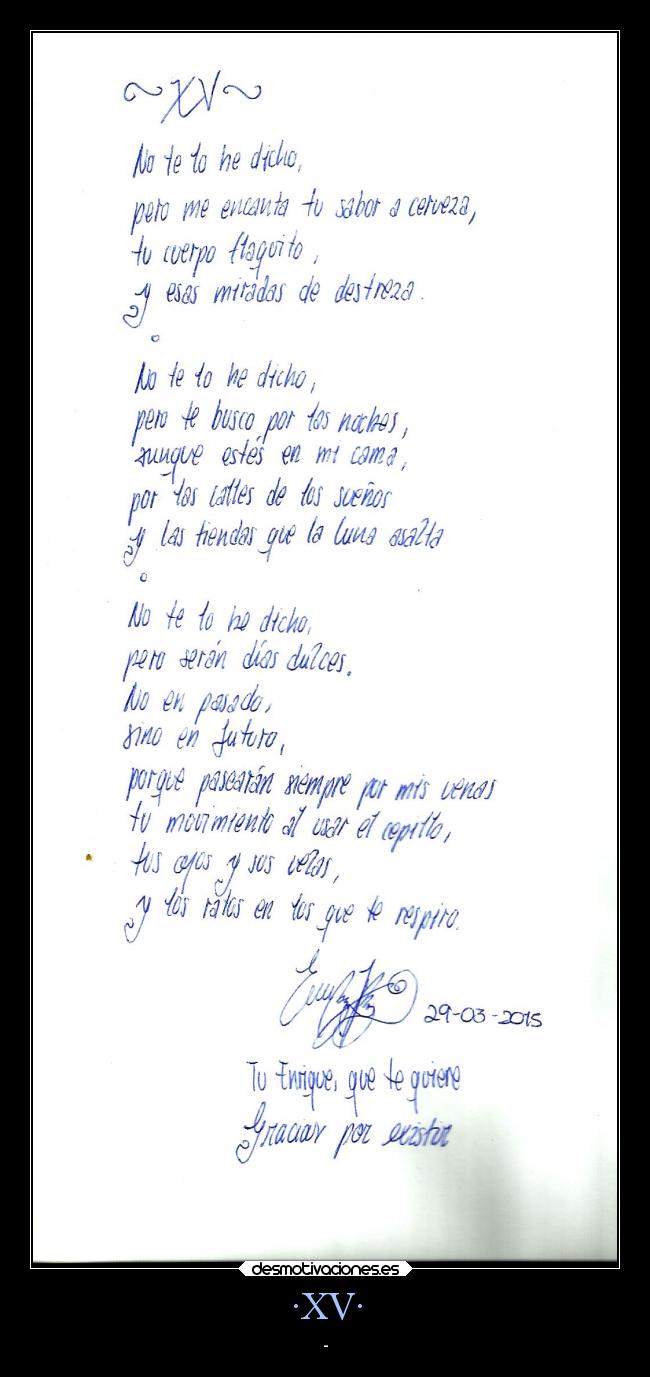 ~XV~
No te lo he dicho,
pero me encanta tu sabor a cerveza,
tu cuerpo flaquito,
y esas miradas de destreza.
No te lo he dicho,
pero te busco por las noches,
aunque estés en mi cama,
por las calles de los sueños
y las tiendas que la luna asalta
No te lo he dicho,
pero serán días dulces.
No en pasado,
sino en futuro,
porque pasearán siempre por mis venas
tu movimiento al usar el cepillo,
tus ojos y sus velas,
y los ratos en los que te respiro.
29-03-2015
Tu Enrique, que te quiere
Gracias por existir
desmotivaciones.es
·XV·
-